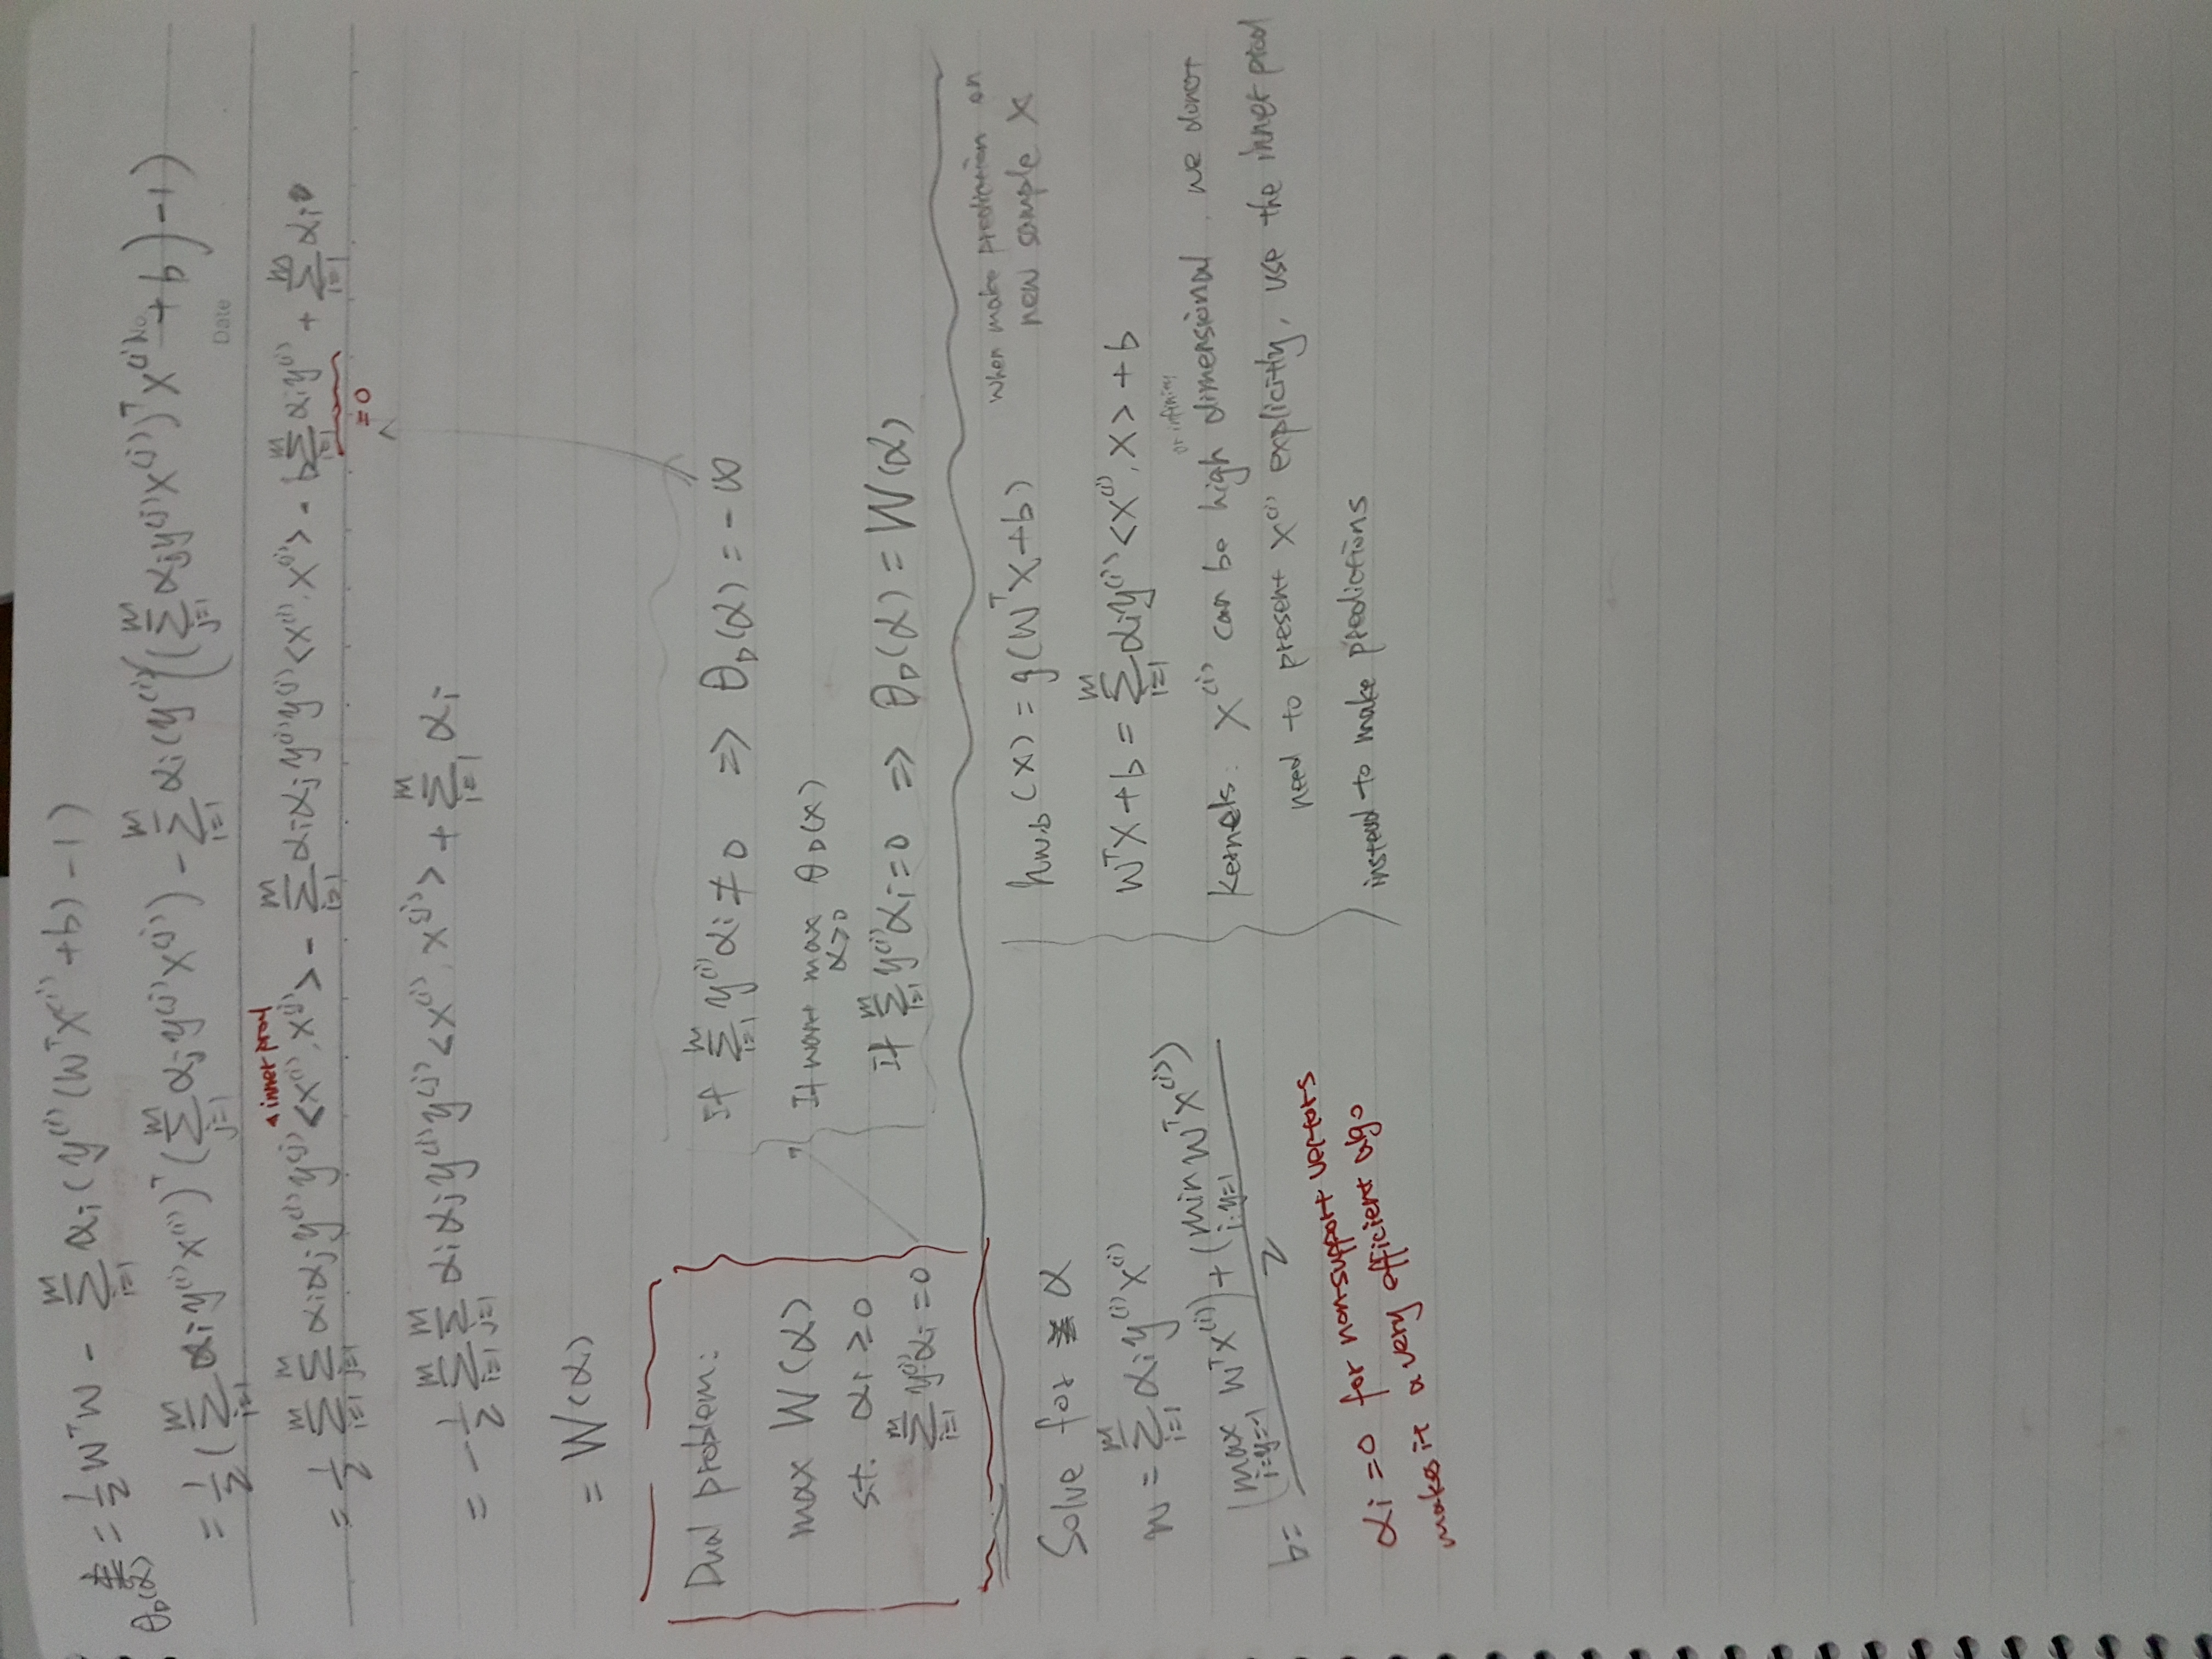 θ_D(α) = 1/2 W^T W - Σ_{i=1}^{m} α_i (y^(i) (W^T X^(i) + b) - 1)
No.
= 1/2 (Σ_{i=1}^{m} α_i y^(i) x^(i))^T (Σ_{j=1}^{m} α_j y^(j) x^(j)) - Σ_{i=1}^{m} α_i (y^(i) ((Σ_{j=1}^{m} α_j y^(j) x^(j))^T x^(i) + b) - 1)
Date
inner prod
= 1/2 Σ_{i=1}^{m} Σ_{j=1}^{m} α_i α_j y^(i) y^(j) <x^(i), x^(j)> - Σ_{i=1}^{m} α_i α_j y^(i) y^(j) <x^(i), x^(j)> - b Σ_{i=1}^{m} α_i y^(i) + Σ_{i=1}^{m} α_i
= 0
= - 1/2 Σ_{i=1}^{m} Σ_{j=1}^{m} α_i α_j y^(i) y^(j) <x^(i), x^(j)> + Σ_{i=1}^{m} α_i
= W(α)
Dual problem:
max W(α)
st. α_i ≥ 0
Σ_{i=1}^{m} y^(i) α_i = 0
If Σ_{i=1}^{m} y^(i) α_i ≠ 0 => θ_D(α) = -∞
If want max_{α≥0} θ_D(α)
If Σ_{i=1}^{m} y^(i) α_i = 0 => θ_D(α) = W(α)
Solve for α
w = Σ_{i=1}^{m} α_i y^(i) x^(i)
b = ((max_{i:y=-1} W^T x^(i)) + (min_{i:y=1} W^T x^(i))) / 2
α_i = 0 for non-support vectors
makes it a very efficient algo
h_{w,b}(x) = g(W^T X + b)
When make prediction on
new sample X
W^T X + b = Σ_{i=1}^{m} α_i y^(i) <x^(i), x> + b
or infinity
Kernels: X^(i) can be high dimensional. we donot
need to present x^(i) explicitly, use the inner prod
instead to make predictions